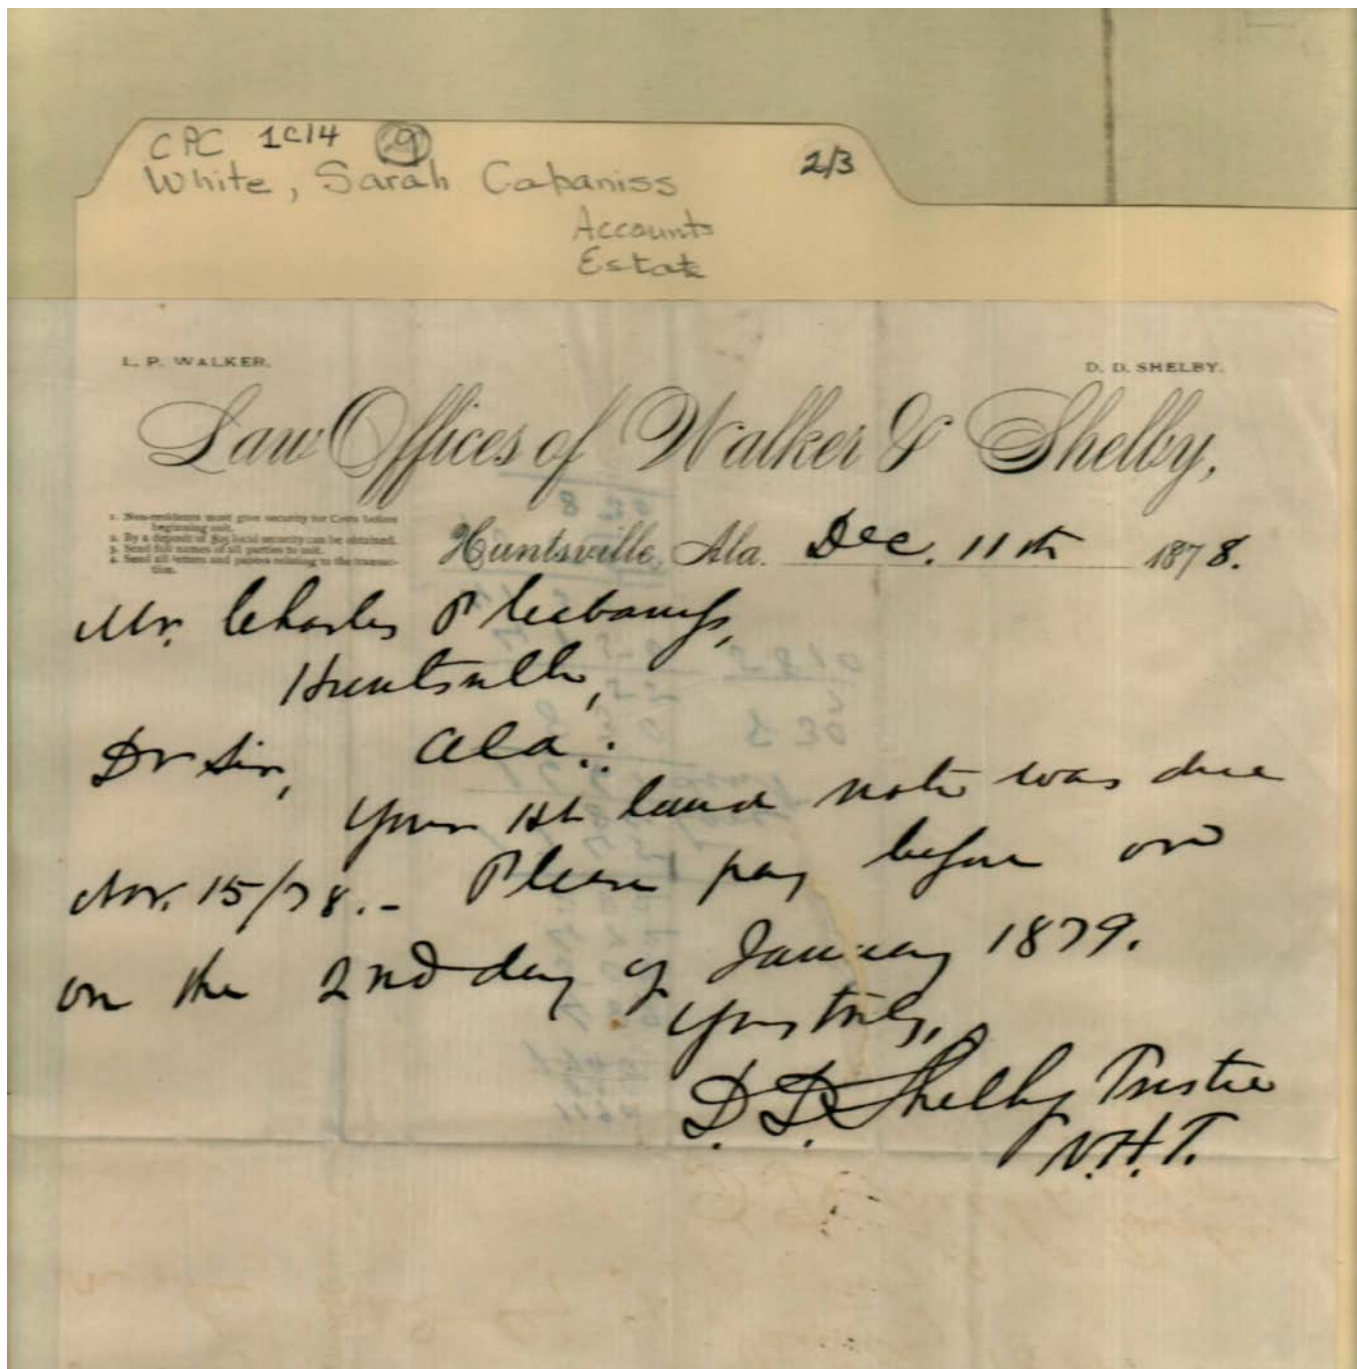 CPC 1C14 9 2/3
White, Sarah Cabaniss
Accounts
Estate
L. P. WALKER. D. D. SHELBY.
Law Offices of Walker & Shelby,
1. Non-residents must give security for Costs before
beginning suit.
2. By a deposit of $25 local security can be obtained.
3. Send full names of all parties to suit.
4. Send all letters and papers relating to the transac-
tion.
Huntsville, Ala. Dec. 11th 1878.
Mr. Charles P Cabaniss,
Huntsville,
Dr Sir, Ala.:
Your 1st land note was due
Nov. 15/78.- Please pay before or
on the 2nd day of January 1879.
Yours truly,
D. D. Shelby Trustee
V.H.T.